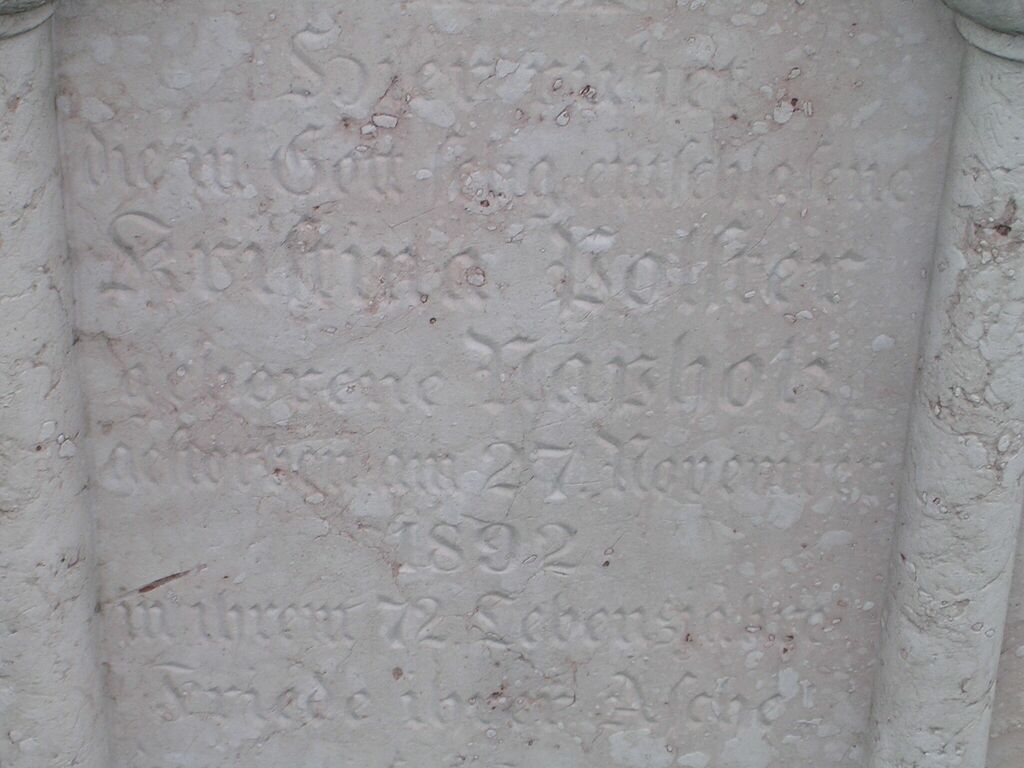 Hier ruhet
die in Gott selig entschlafene
Kristina Polster
geborene Narholz
gestorben am 27. November
1892
in ihrem 72 Lebensjahre
Friede ihrer Asche